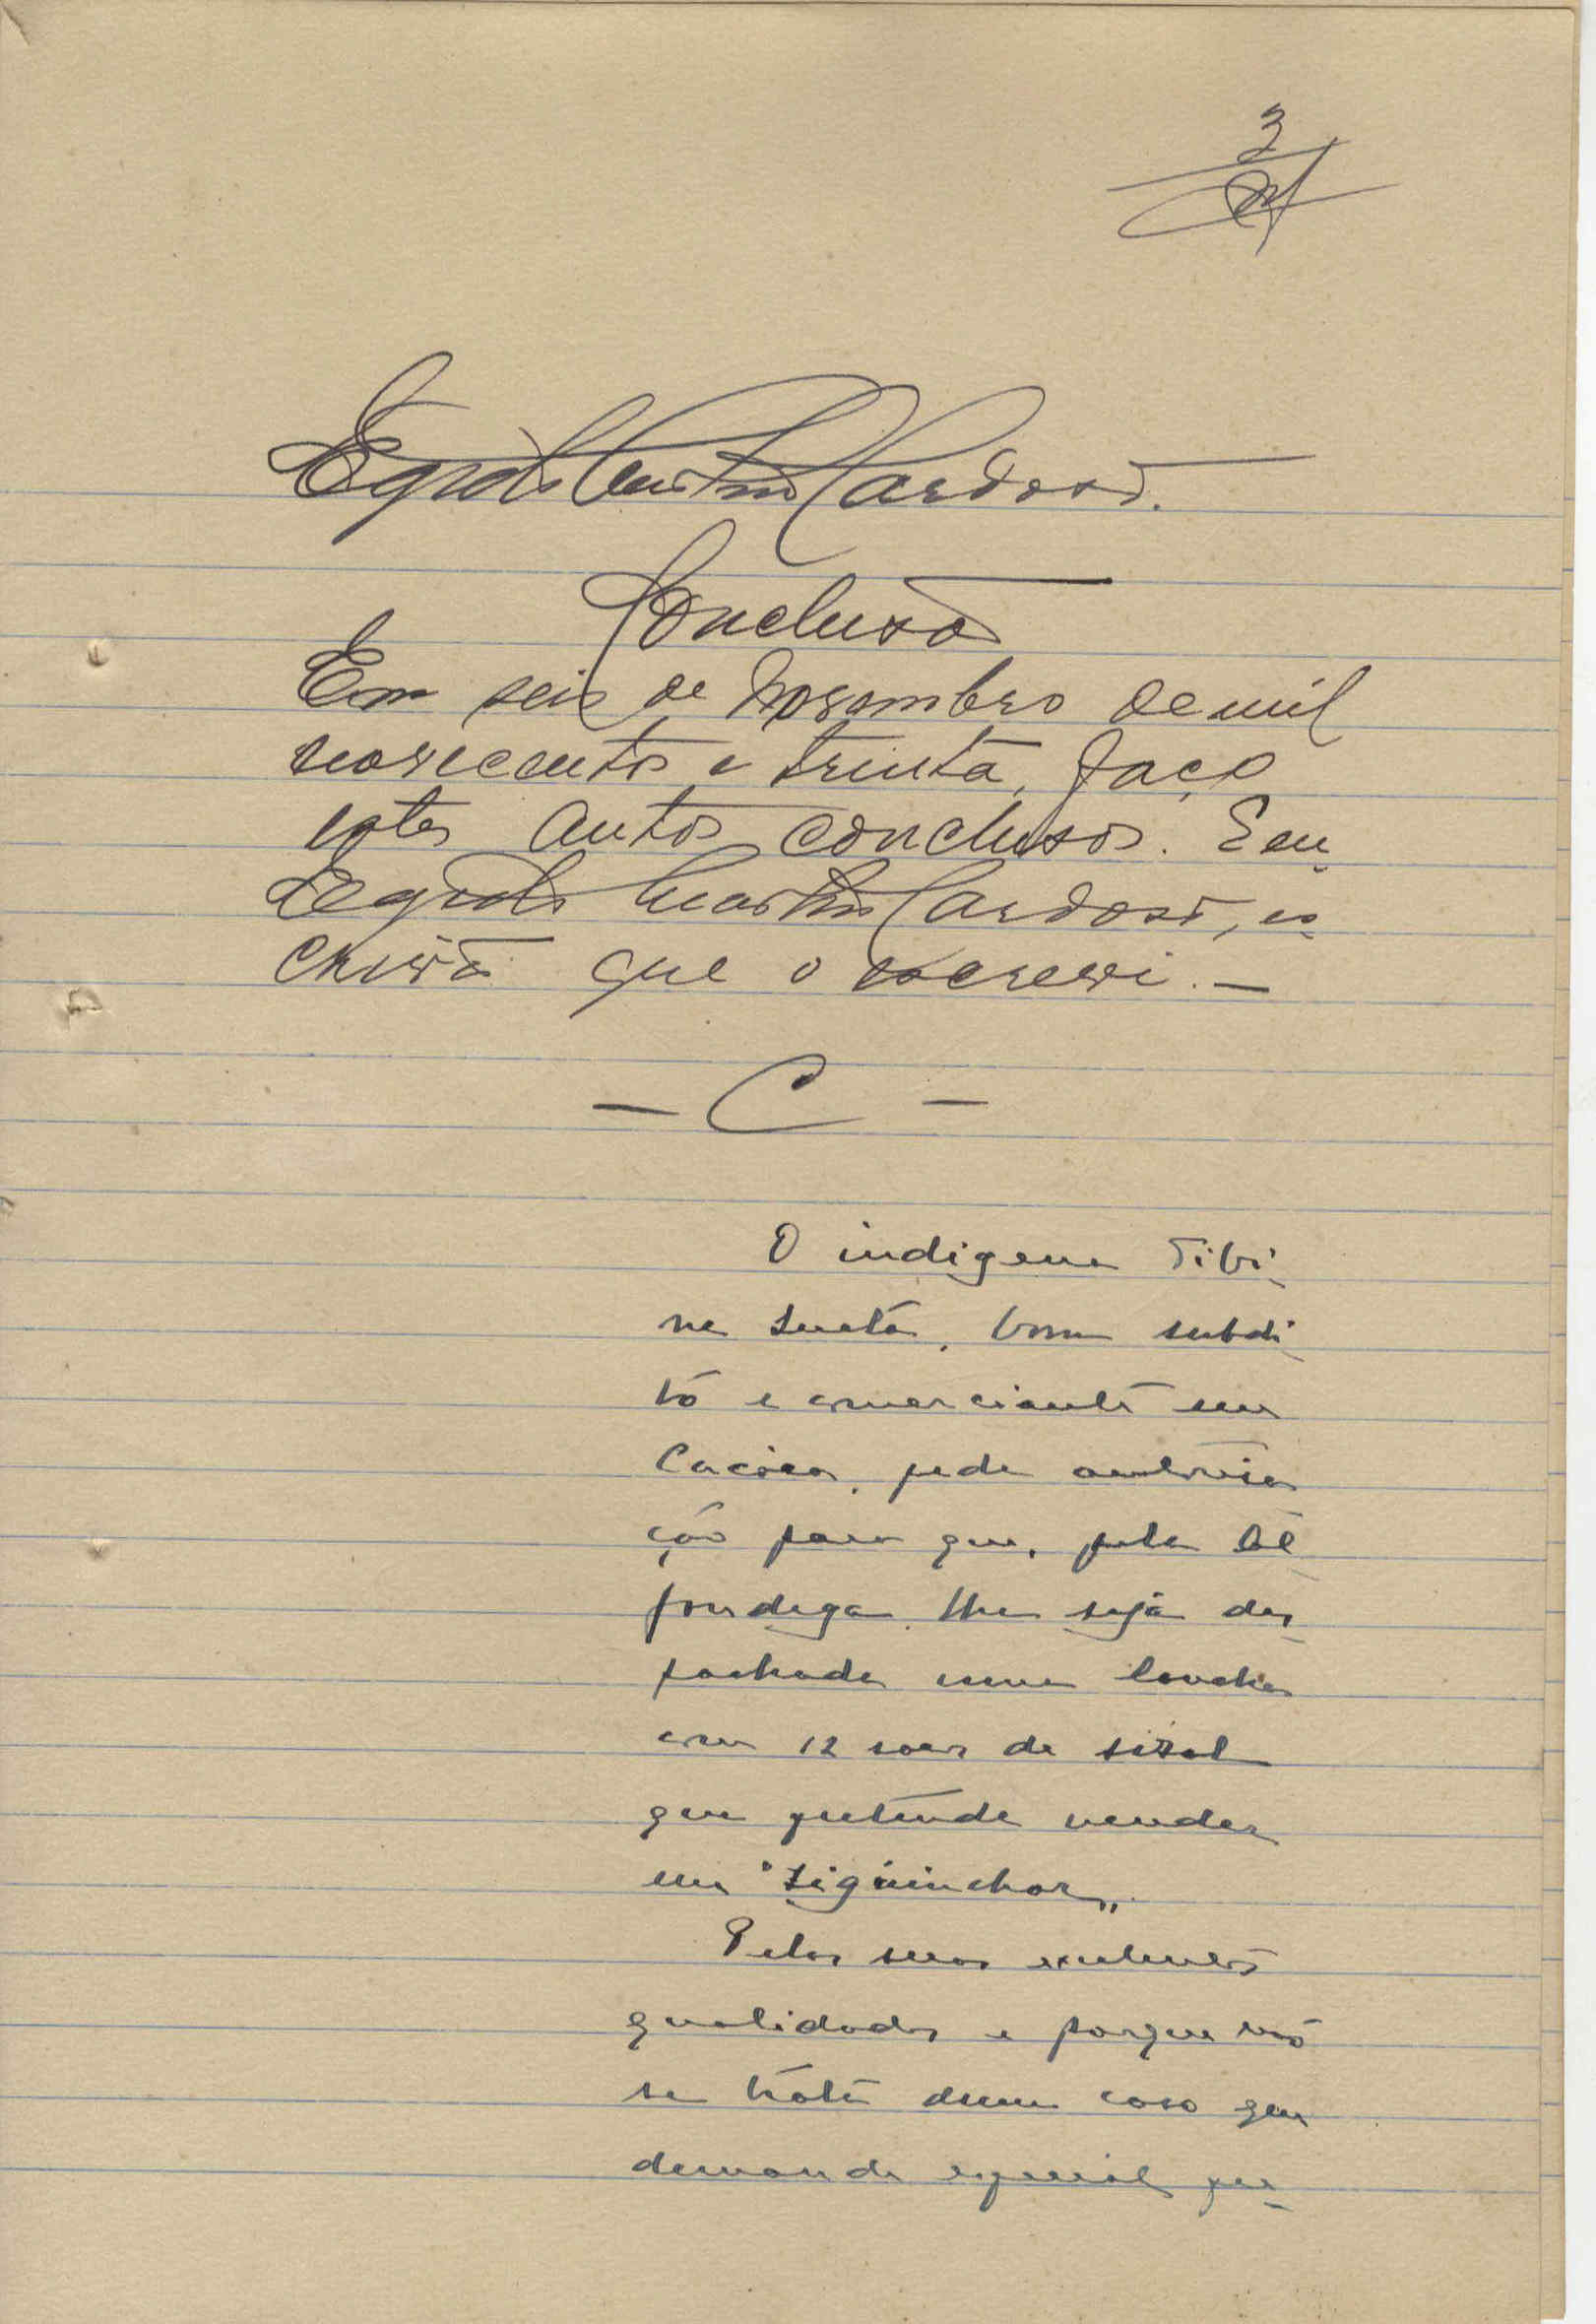 3
Martins Cardoso.
Conclusão
Em seis de Novembro de mil
novecentos e trinta, faço
estes autos conclusos. E eu
Martins Cardoso, es-
crivão que o escrevi. —
— C —
O indigena Tibi-
na , bom subdi-
to e comerciante em
Cacheu, pede autorisa
ção para que, pela Al-
fandega, lhe seja des-
pachada uma lancha
com 12 de
que pretende vender
em "Siguinchor„.
Pelas suas excelentes
qualidades e porque não
se trata dum caso que
demande especial